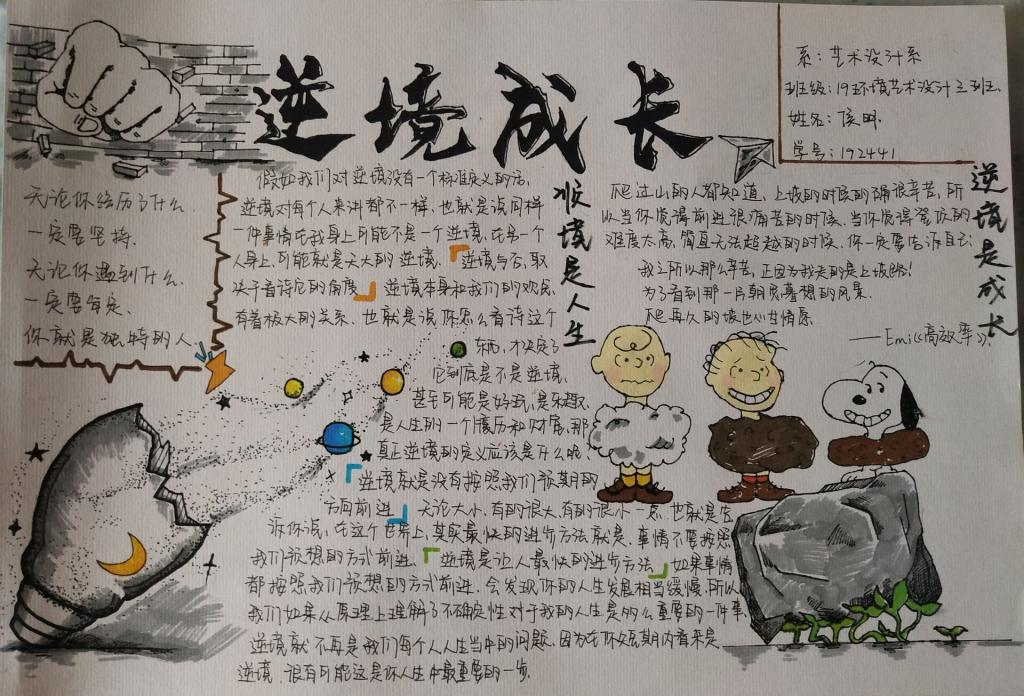 逆境成长
系：艺术设计系
班级：19环境艺术设计三班
姓名：
学号：192441
无论你经历了什么
一定要坚持.
无论你遇到什么
一定要肯定.
你就是独特的人.
假如我们对逆境没有一个标准定义的话,
逆境对每个人来讲都不一样.也就是说同样
一件事情在我身上可能不是一个逆境,在另一个
人身上,可能就是天大的逆境.「逆境与否,取
决于看待它的角度」逆境本身和我们的观念
有着极大的关系.也就是说你怎么看待这个
东西,才决定了
它到底是不是逆境,
甚至可能是好玩,是乐趣,
是人生的一个履历和财富,那
真正逆境的定义应该是什么呢?
「逆境就是没有按照我们预期的
方向前进」无论大小,有的很大,有的很小一点.也就是告
诉你说,在这个世界上,其实最快的进步方法就是,事情不要按照
我们预想的方式前进.「逆境是让人最快的进步方法」如果事情
都按照我们预想的方式前进,会发现你的人生发展相当缓慢,所以
我们如果从原理上理解了不确定性对于我的人生是多么重要的一件事,
逆境就不再是我们每个人人生当中的问题.因为在你短期内看来是
逆境,很有可能这是你人生中最重要的一步.
顺境是人生
爬过山的人都知道,上坡的时候的确很辛苦,所
以当你觉得前进很痛苦的时候,当你觉得
难度太高,简直无法超越的时候,你一定要告诉自己:
我之所以那么辛苦,正因为我走的是上坡路!
为了看到那一片朝思暮想的风景.
爬再久的坡也心甘情愿
——Emi《高效率》.
逆境是成长